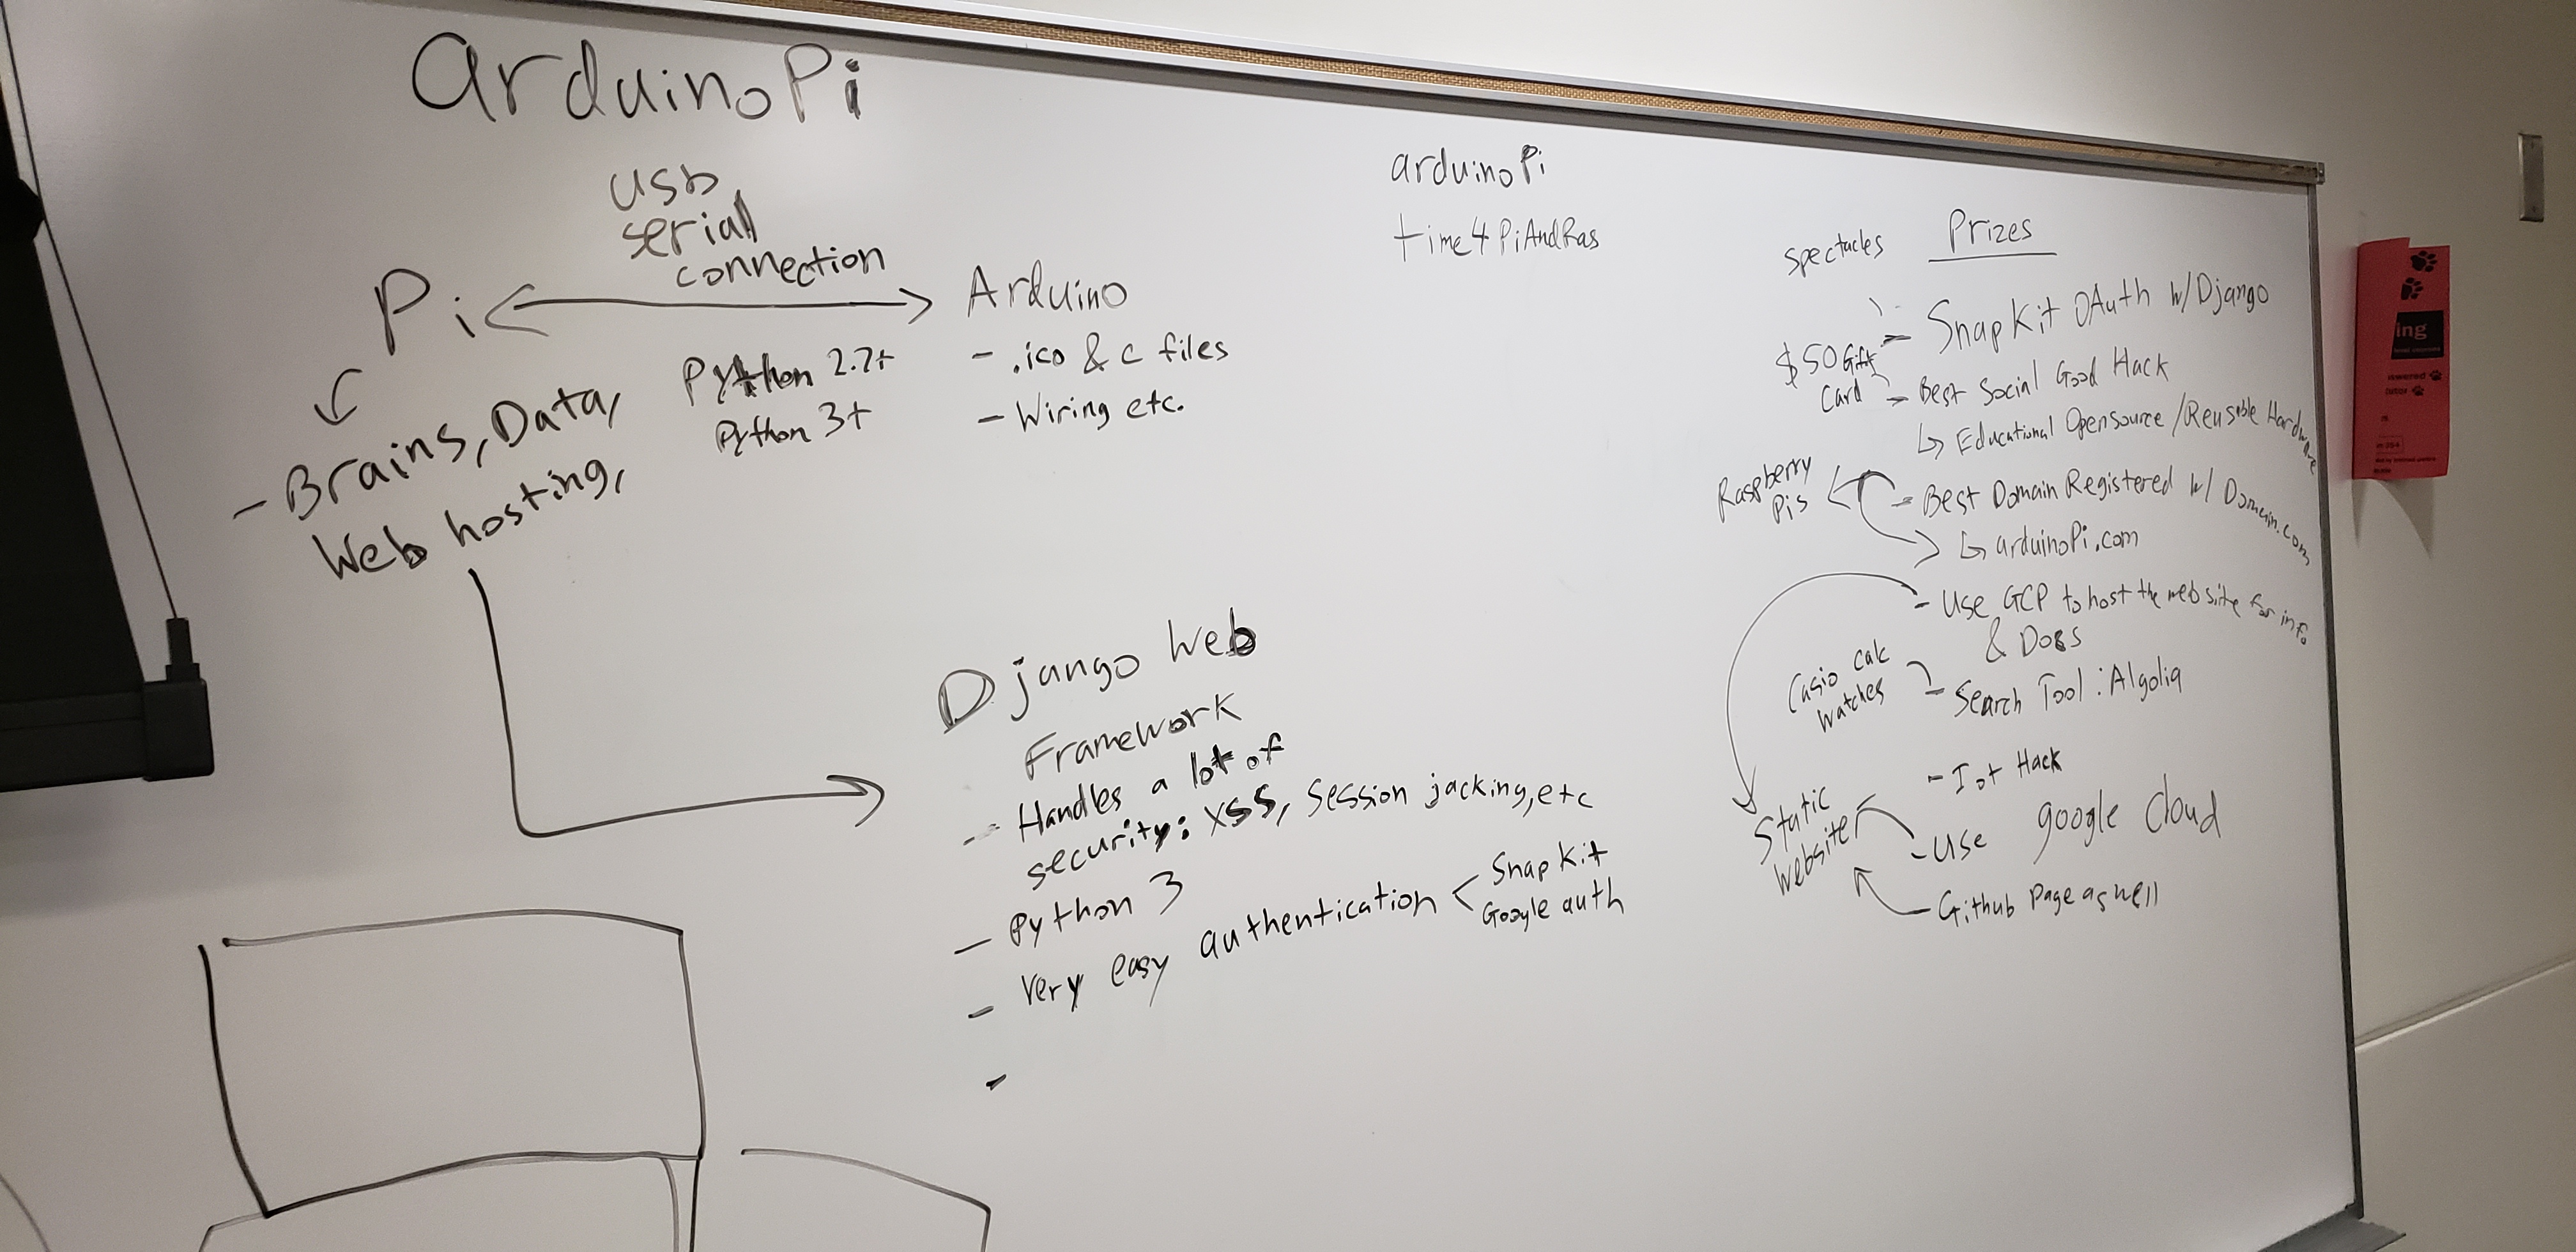 arduinoPi
usb
serial
connection
Pi
Arduino
- .ico & c files
- Wiring etc.
Python 2.7+
Python 3+
- Brains, Data,
Web hosting,
Django Web
Framework
- Handles a lot of
security: XSS, Session jacking, etc
- Python 3
- Very easy authentication
Snap Kit
Google auth
-
arduinoPi
time4PiAndRas
Prizes
Spectacles
- SnapKit OAuth w/Django
$50 Gift
Card
- Best Social Good Hack
Educational Opensource/Reusable Hardware
Raspberry
Pis
- Best Domain Registered w/ Domain.com
arduinoPi.com
- Use GCP to host the website for info
& Docs
Casio Calc
Watches
- Search Tool: Algolia
- Iot Hack
Static
Website
- Use google Cloud
- Github Page as well
ing